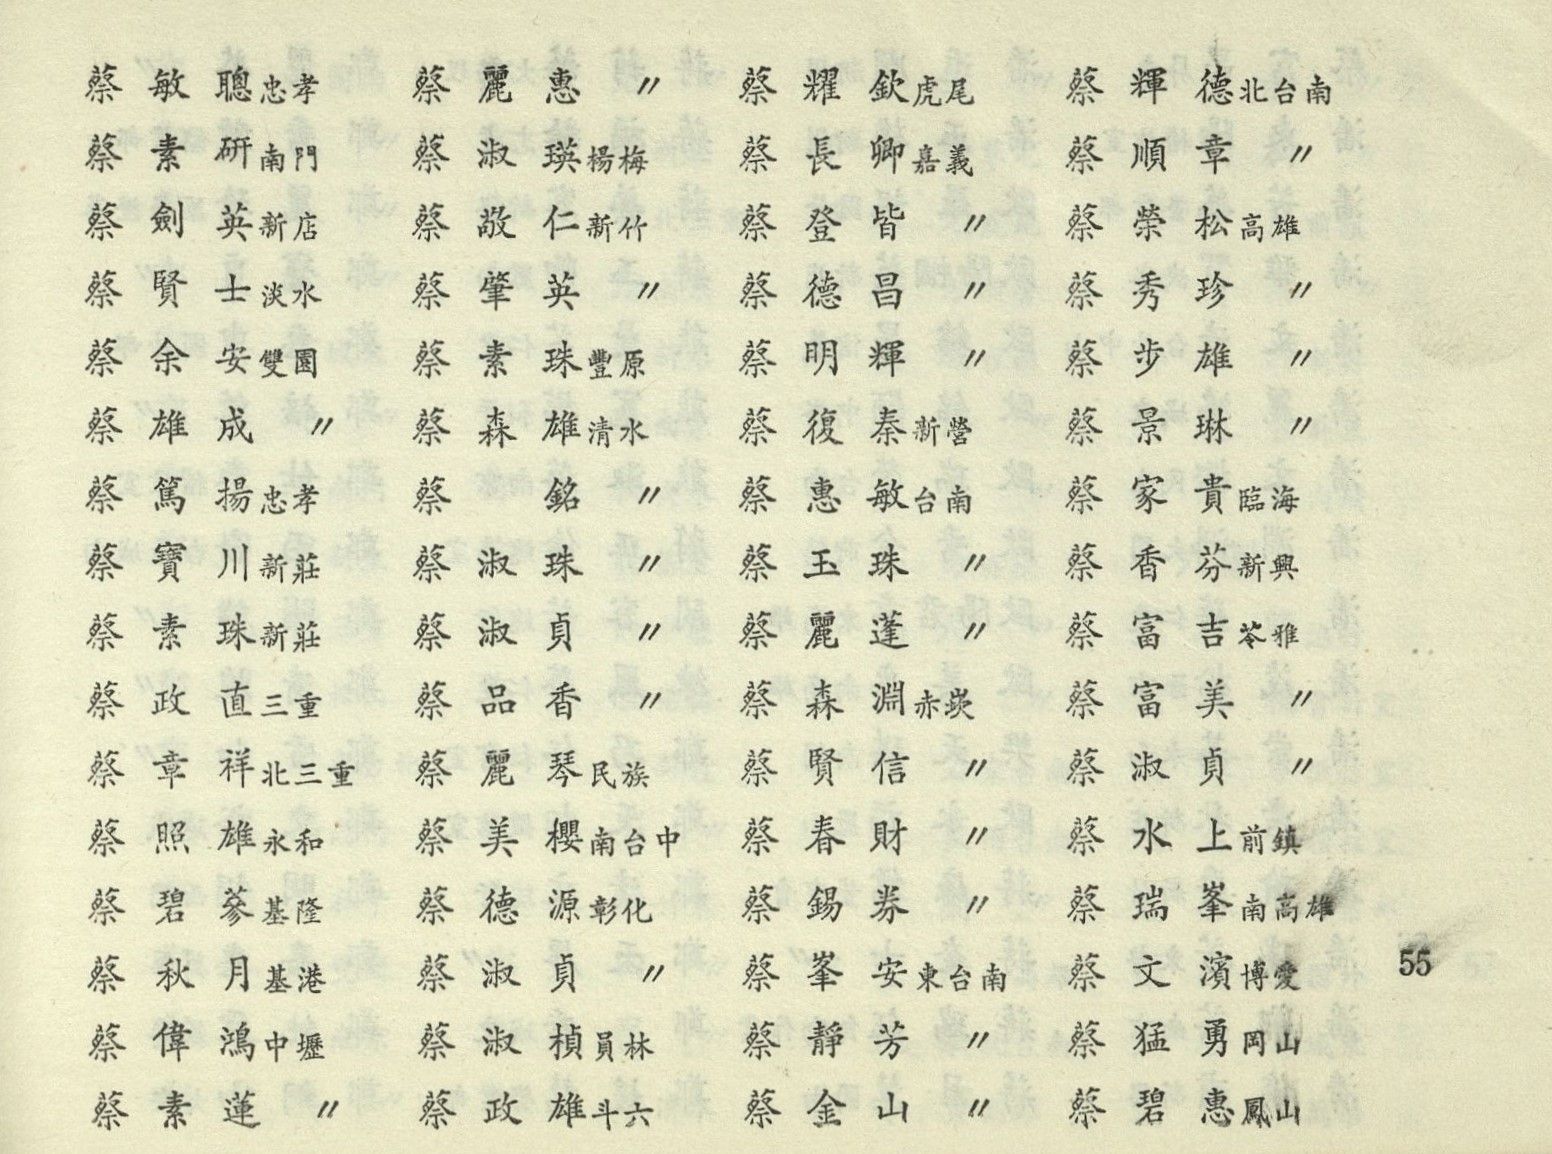 蔡敏聰忠孝
蔡素研南門
蔡劍英新店
蔡賢士淡水
蔡余安雙園
蔡雄成〃
蔡篤揚忠孝
蔡寶川新莊
蔡素珠新莊
蔡政直三重
蔡章祥北三重
蔡照雄永和
蔡碧蔘基隆
蔡秋月基港
蔡偉鴻中壢
蔡素蓮〃
蔡麗惠〃
蔡淑瑛楊梅
蔡敬仁新竹
蔡肇英〃
蔡素珠豐原
蔡森雄清水
蔡銘〃
蔡淑珠〃
蔡淑貞〃
蔡品香〃
蔡麗琴民族
蔡美櫻南台中
蔡德源彰化
蔡淑貞〃
蔡淑楨員林
蔡政雄斗六
蔡耀欽虎尾
蔡長卿嘉義
蔡登皆〃
蔡德昌〃
蔡明輝〃
蔡復秦新營
蔡惠敏台南
蔡玉珠〃
蔡麗蓬〃
蔡森淵赤崁
蔡賢信〃
蔡春財〃
蔡錫券〃
蔡峯安東台南
蔡靜芳〃
蔡金山〃
蔡輝德北台南
蔡順章〃
蔡榮松高雄
蔡秀珍〃
蔡步雄〃
蔡景琳〃
蔡家貴臨海
蔡香芬新興
蔡富吉苓雅
蔡富美〃
蔡淑貞〃
蔡水上前鎮
蔡瑞峯南高雄
蔡文濱博愛
蔡猛勇岡山
蔡碧惠鳳山
55